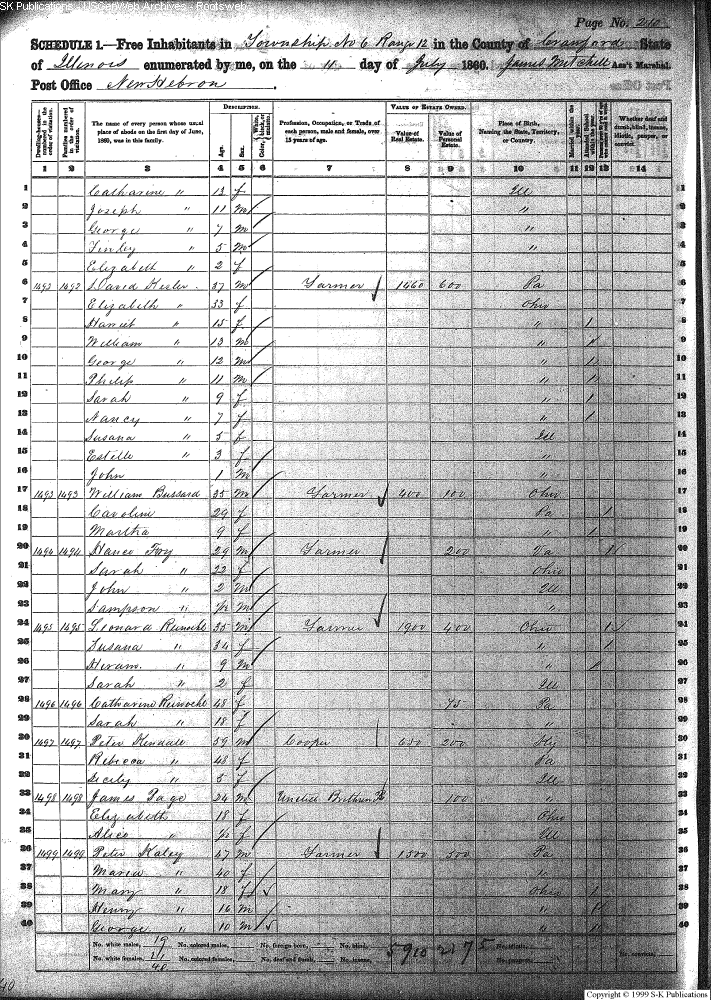 SK Publications - USGenWeb Archives - Rootsweb
Page No. 210
SCHEDULE 1.—Free Inhabitants in Township No 6 Range 12 in the County of Crawford State
of Illinois enumerated by me, on the 11 day of July 1860. James Mitchell Ass't Marshal.
Post Office New Hebron.
Dwelling-houses—numbered in the order of visitation.
Families numbered in the order of visitation.
The name of every person whose usual place of abode on the first day of June, 1860, was in this family.
DESCRIPTION.
Age.
Sex.
Color, White, black, or mulatto.
Profession, Occupation, or Trade, of each person, male and female, over 15 years of age.
VALUE OF ESTATE OWNED.
Value of Real Estate.
Value of Personal Estate.
Place of Birth, Naming the State, Territory, or Country.
Married within the year.
Attended School within the year.
Whether deaf and dumb, blind, insane, idiotic, pauper, or convict.
1 2 3 4 5 6 7 8 9 10 11 12 13 14
1 Catharine " 13 f Ill 1
2 Joseph " 11 m " 2
3 George " 7 m " 3
4 Finley " 5 m " 4
5 Elizabeth " 2 f 5
6 1492 1492 David Hesler 37 m Farmer 1660 600 Pa 6
7 Elizabeth " 33 f Ohio 7
8 Harriet " 15 f " 1 8
9 William " 13 m " 1 9
10 George " 12 m " 1 10
11 Philip " 11 m " 1 11
12 Sarah " 9 f " 1 12
13 Nancy " 7 f " 1 13
14 Susana " 5 f Ill 14
15 Estelle " 3 f " 15
16 John 1 m " 16
17 1493 1493 William Bussard 35 m Farmer 400 100 Ohio 17
18 Caroline 29 f Pa 1 18
19 Martha 9 f " 1 19
20 1494 1494 Foy 29 m Farmer 200 1 20
21 Sarah " 22 f Ohio 21
22 John " 2 m Ill 22
23 Sampson " m " 23
24 1495 1495 Leonard Reinoehl 35 m Farmer 1900 400 Ohio 1 24
25 Susana " 34 f " 1 25
26 Hiram " 9 m " 1 26
27 Sarah " 2 f Ill 27
28 1496 1496 Catharine Reinoehl 48 f 75 Pa 28
29 Sarah " 18 f " 29
30 1497 1497 Peter Kendall 59 m Cooper 650 200 Ky 30
31 Rebecca " 48 f Pa 31
32 Sicily " 5 f Ill 32
33 1498 1498 James Page 24 m United Brethren 100 " 33
34 Elizabeth 18 f Ohio 34
35 Alice " f Ill 35
36 1499 1499 Peter Haley 47 m Farmer 1500 500 Pa 36
37 Maria " 40 f " 37
38 Mary " 18 f Ohio 1 38
39 Henry " 16 m " 1 39
40 George " 10 m " 40
No. white males, 19 No. colored males, No. foreign born, No. blind, 5910 2175 No. idiotic,
No. white females, 21 No. colored females, No. deaf and dumb, No. insane, No. paupers, No. convicts,
40
Copyright © 1999 S-K Publications